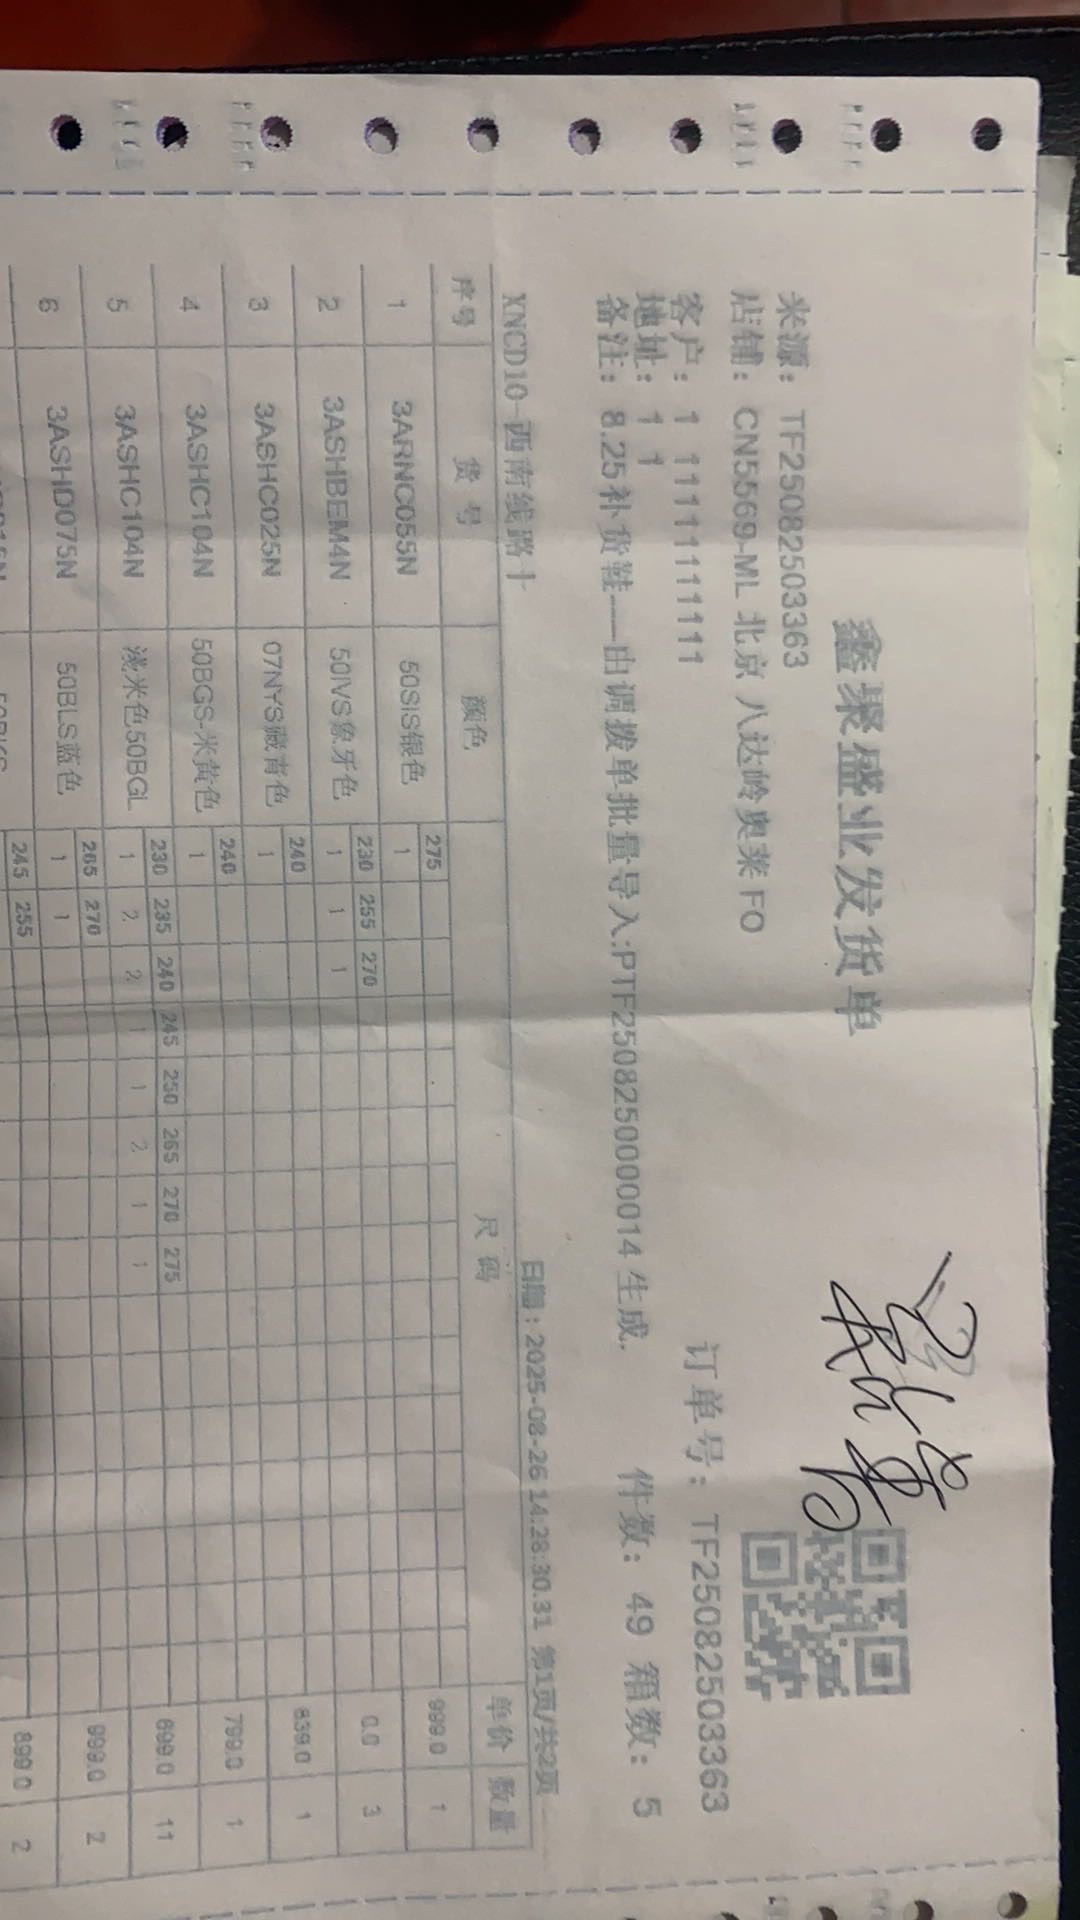 鑫聚盛业发货单
来源：TF25082503363
店铺：CN5569-ML 北京 八达岭奥莱 FO
订单号：TF25082503363
客户：1 11111111111
地址：1 1
备注：8.25补货鞋——由调拨单批量导入:PTF2508250000014 生成.
件数：49 箱数：5
XNCD10-西南线路十
日期：2025-08-26 14:28:30.31 第1页/共2页
序号 货号 颜色 尺码 单价 数量
275
1 3ARNC055N 50SIS银色 1 999.0 1
230 255 270
2 3ASHBEM4N 50IVS象牙色 1 1 1 0.0 3
240
3 3ASHC025N 07NYS藏青色 1 839.0 1
240
4 3ASHC104N 50BGS-米黄色 1 799.0 1
230 235 240 245 250 265 270 275
5 3ASHC104N 浅米色50BGL 1 2 2 1 1 2 1 1 699.0 11
265 270
6 3ASHD075N 50BLS蓝色 1 1 999.0 2
245 255
899.0 2